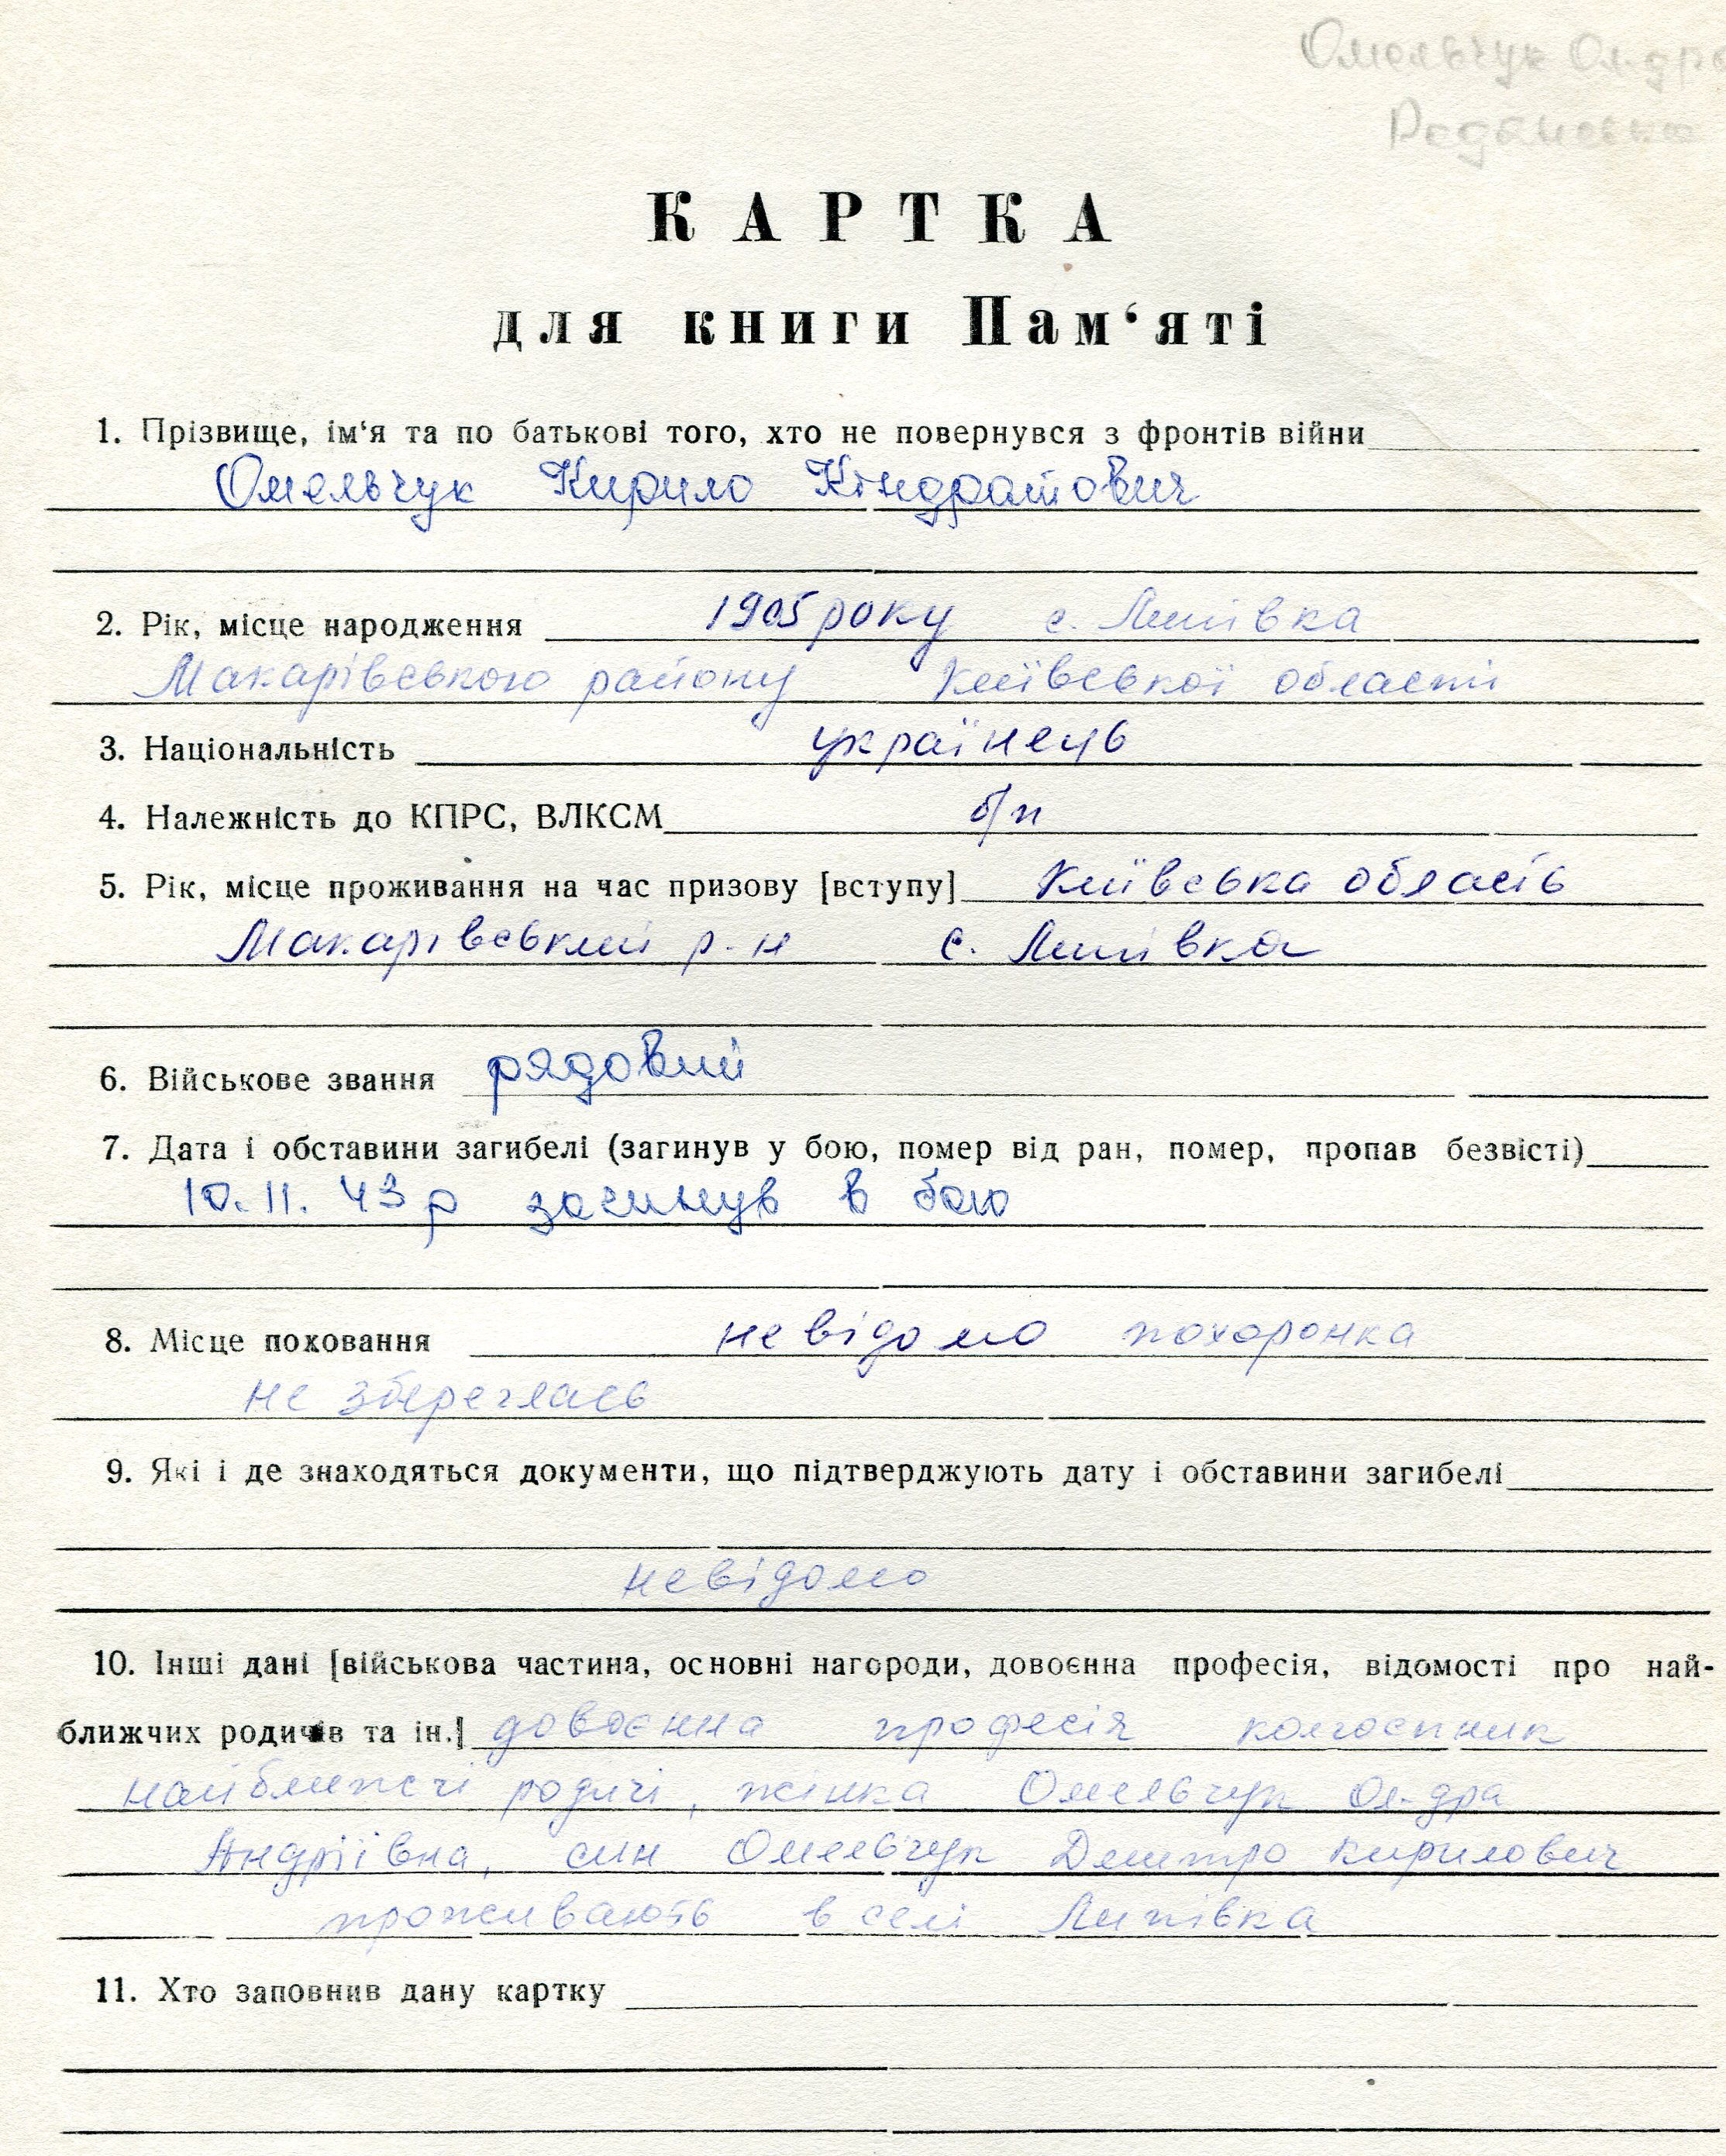 Омельчук Ол-дра
Радянська
КАРТКА
для книги Пам‘яті
1. Прізвище, ім‘я та по батькові того, хто не повернувся з фронтів війни
Омельчук Кирило Кіндратович
2. Рік, місце народження 1905 року с. Липівка
Макарівського району Київської області
3. Національність українець
4. Належність до КПРС, ВЛКСМ б/п
5. Рік, місце проживання на час призову [вступу] Київська область
Макарівський р-н с. Липівка
6. Військове звання рядовий
7. Дата і обставини загибелі (загинув у бою, помер від ран, помер, пропав безвісті)
10.11.43 р загинув в бою
8. Місце поховання невідомо похоронка
не збереглась
9. Які і де знаходяться документи, що підтверджують дату і обставини загибелі
невідомо
10. Інші дані [військова частина, основні нагороди, довоєнна професія, відомості про най-
ближчих родичів та ін.] довоєнна професія колгоспник
найближчі родичі, жінка Омельчук Ол-дра
Андріївна, син Омельчук Дмитро Кирилович
проживають в селі Липівка
11. Хто заповнив дану картку